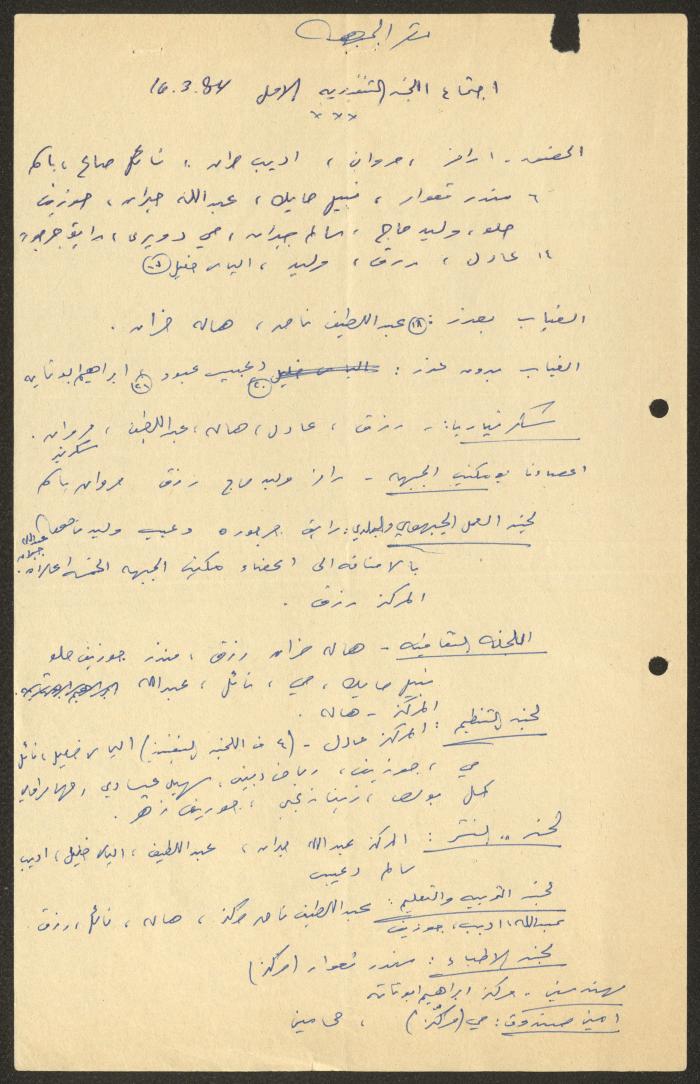 مقر الجبهه
اجتماع اللجنه التنفيذيه الاول 16.3.84
× × ×
الحضور - رامز ، مروان ، اديب حزان ، نائل صالح ، باسم
٦ منذر قعوار ، نبيل صايك ، عبدالله جبران ، جوزيف
حلو ، وليد حاج ، سالم جبران ، مي دويري ، رايق جرجوره
١٤ عادل ، رزق ، وليد ، الياس خليل
الغياب بعذر : (١٨) عبداللطيف ناصر ، هاله خزان .
الغياب بدون عذر : الياس خليل (٢٠) لحبيب عبود (٢١) ابراهيم ابو نايه
سكرتياريا : - رزق ، عادل ، هاله ، عبداللطيف ، مروان .
سكرتير
اعضاءنا بمكتب الجبهه - رامز وليد حاج رزق مروان باسم
لجنه العمل الجبهوي والبلدي : رايق جرجوره دعيب وليد عبدالله جبران
بالاضافه الى اعضاء مكتب الجبهه الخمسه اعلاه
المركز رزق .
اللجنه الثقافيه - هاله خزان رزق ، منذر جوزيف حلو
نبيل صايك ، مي ، نائل ، عبدالله
المركز - هاله .
لجنه التنظيم : المركز عادل - (٤ من اللجنه التنفيذ) الياس خليل ، نائل
مي ، جوزيف ، رياض دبيني ، سهيل عبادي ، مها
كمل بولص ، زينات ، جوزيف زهر .
لجنه النشر : المركز عبدالله جبران ، عبداللطيف ، الياس خليل ، اديب
سالم دعيب
لجنه التربيه والتعليم : عبداللطيف ناصر مركز ، هاله ، نائل ، رزق
عبدالله ، اديب ، جوزيف
لجنه الاطباء : منذر قعوار (مركز)
مهندسين - مركز ابراهيم ابو نايه
امين صندوق : مي (مركز) ، مي